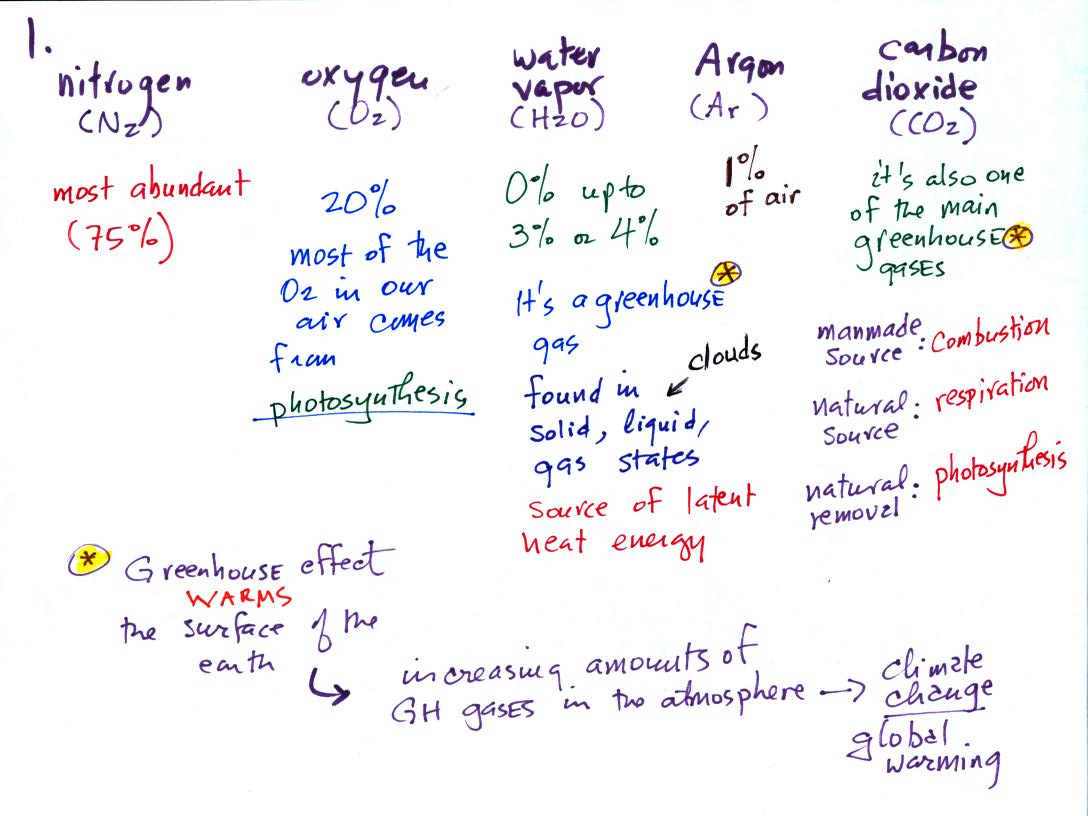 1.
nitrogen
(N2)
most abundant
(75%)
oxygen
(O2)
20%
most of the
O2 in our
air comes
from
photosynthesis
water
vapor
(H2O)
0% up to
3% or 4%
It's a greenhouse *
gas
clouds
found in
solid, liquid,
gas states
source of latent
heat energy
Argon
(Ar)
1%
of air
carbon
dioxide
(CO2)
it's also one
of the main
greenhouse *
gases
manmade
source : combustion
natural
source : respiration
natural
removal : photosynthesis
* Greenhouse effect
WARMS
the surface of the
earth
increasing amounts of
GH gases in the atmosphere → climate
change
global
warming